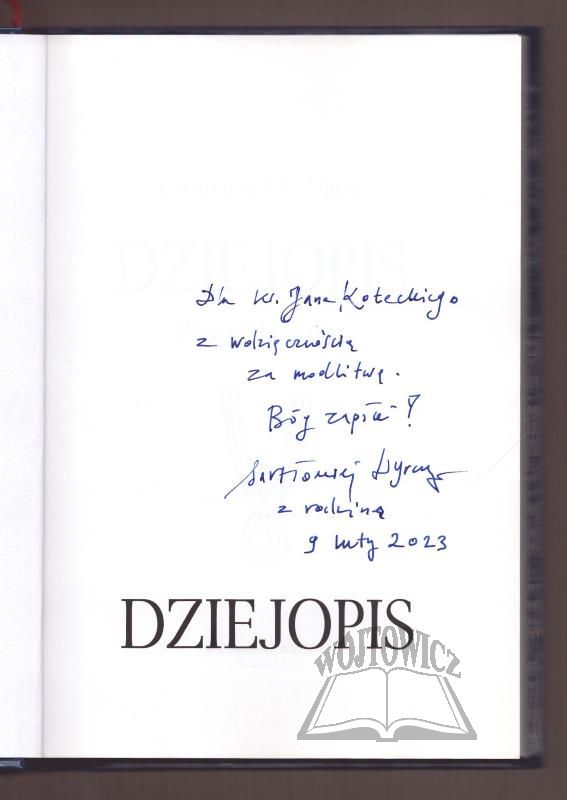 Dla ks. Jana Koteckiego
z wdzięcznością
za modlitwę.
Bóg zapłać!
Bartłomiej
z rodziną
9 luty 2023
DZIEJOPIS
WÓJTOWICZ
DZIEJOPIS